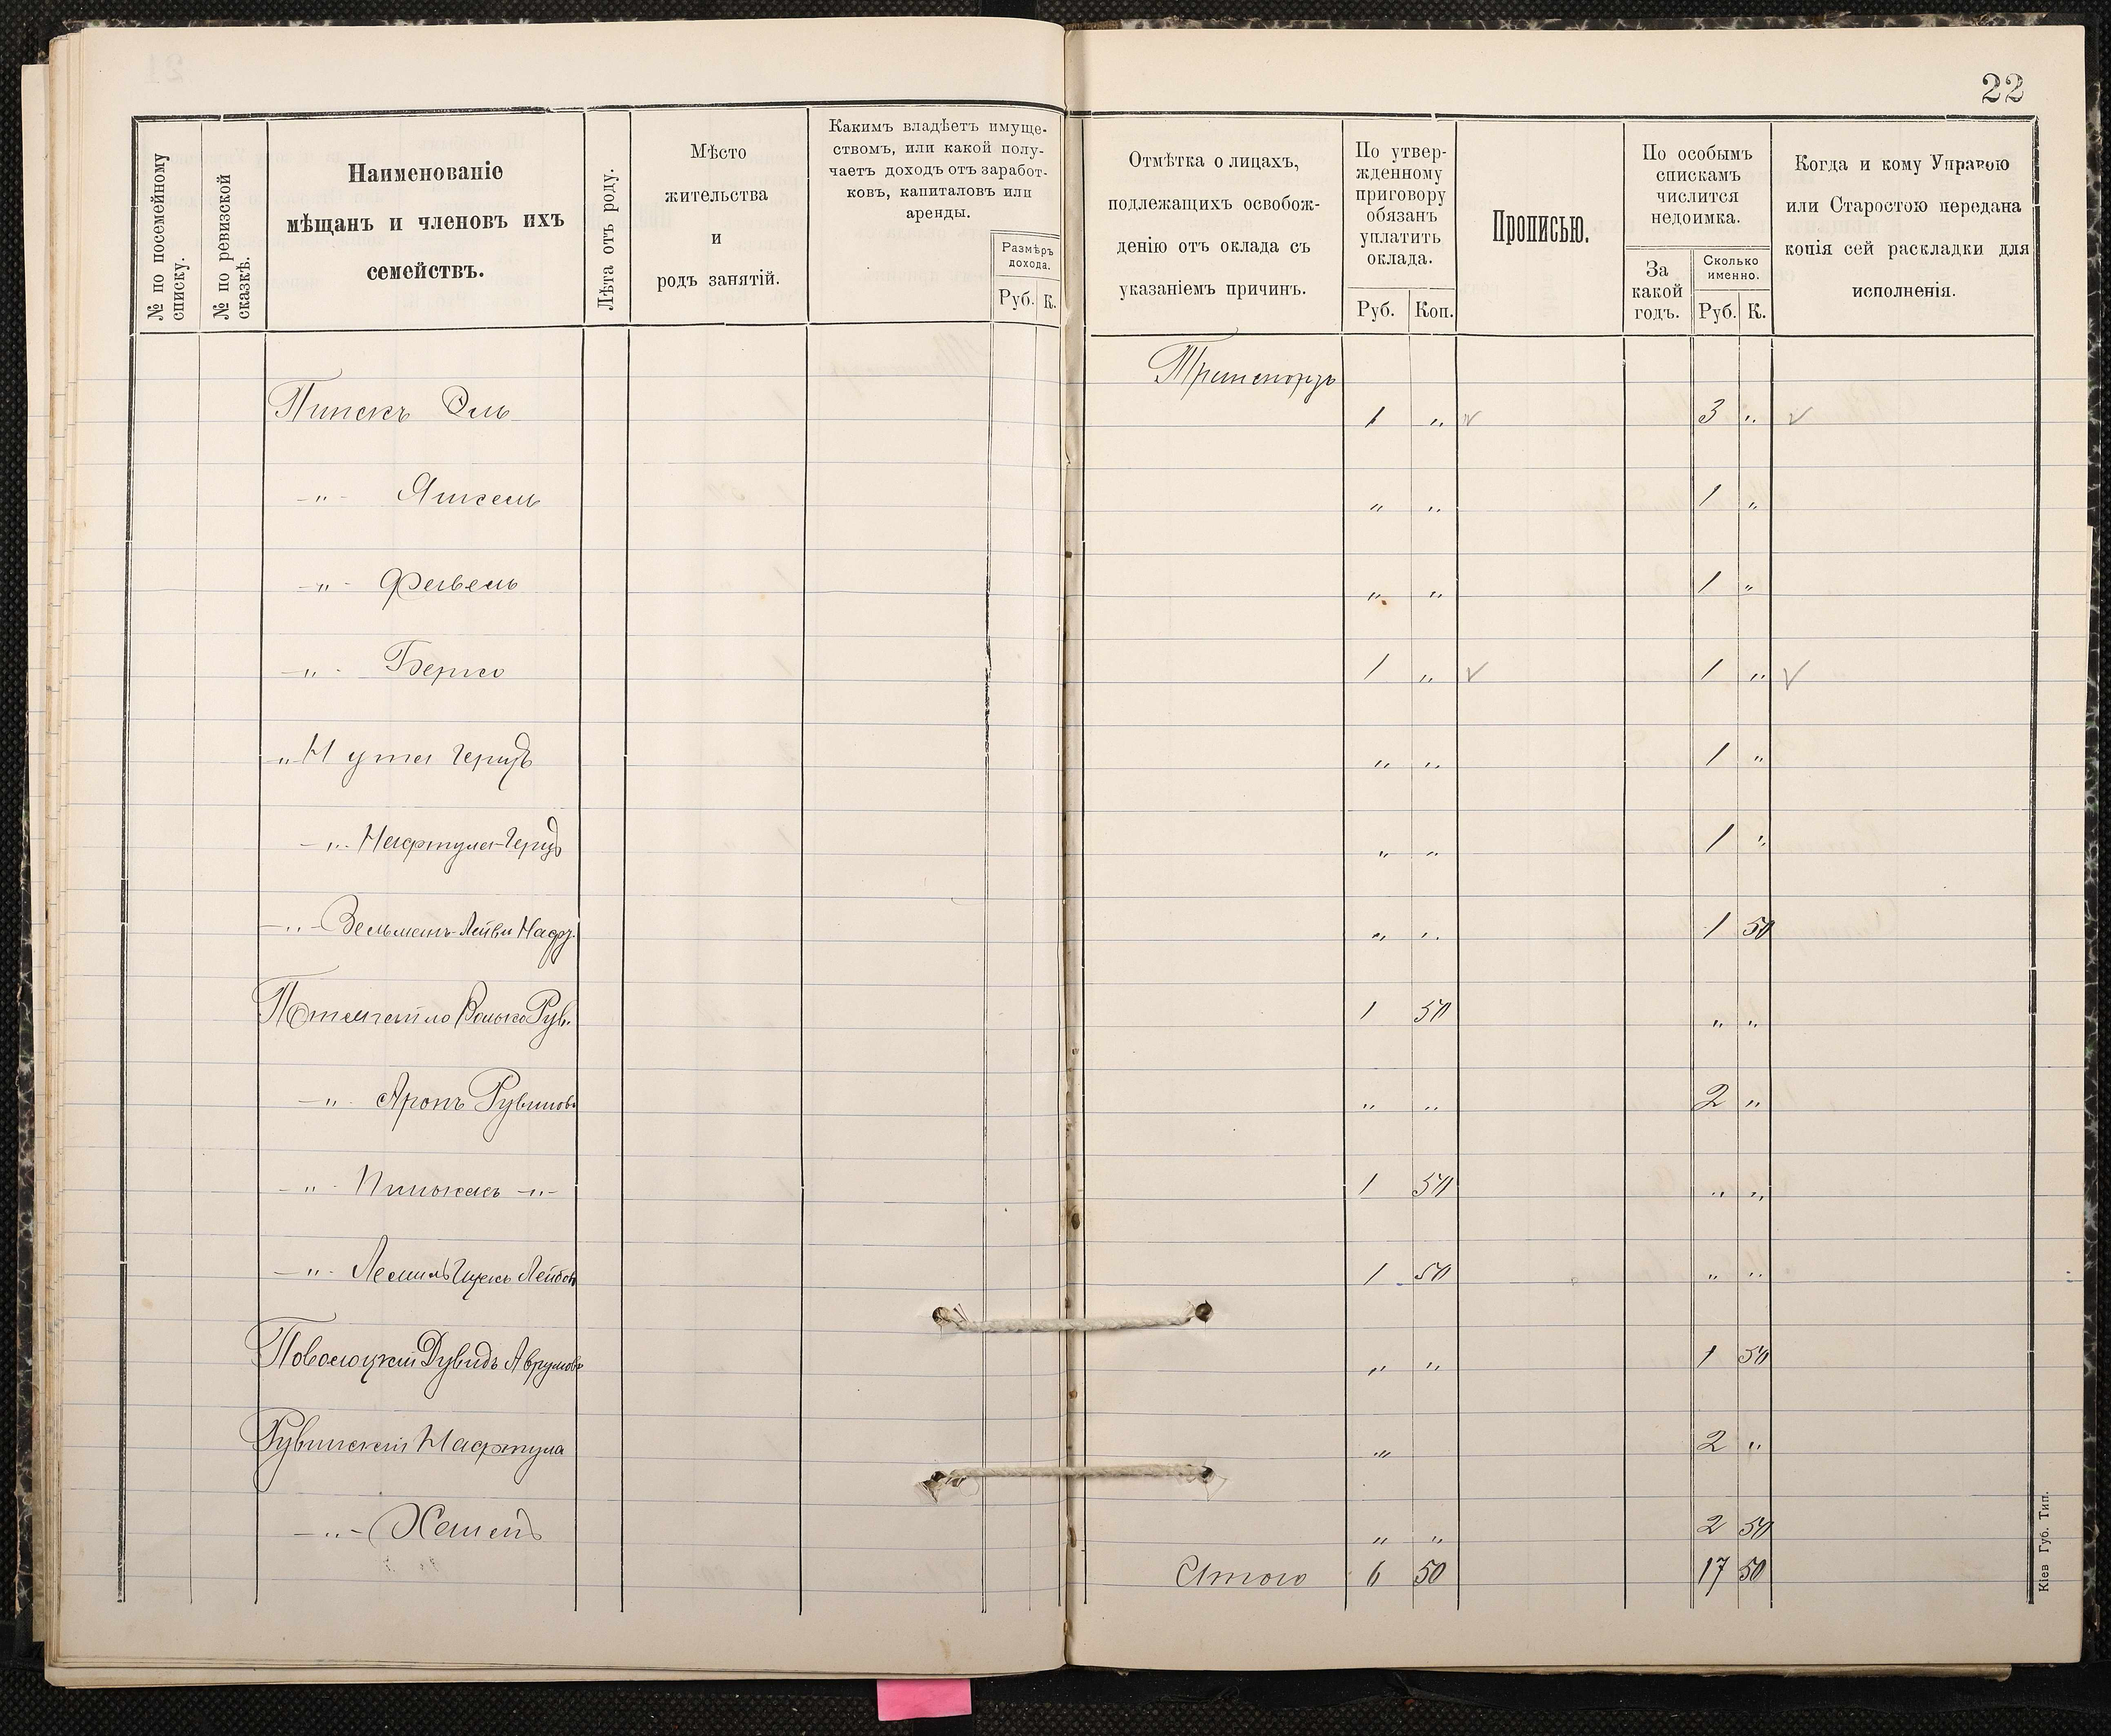 22
№ по посемейному списку.
№ по ревизской сказкѣ.
Наименованіе
мѣщанъ и членовъ ихъ
семействъ.
Лѣта отъ роду.
Мѣсто
жительства
и
родъ занятій.
Какимъ владѣетъ имуще-
ствомъ, или какой полу-
чаетъ доходъ отъ заработ-
ковъ, капиталовъ или
аренды.
Размѣръ
дохода.
Руб. К.
Отмѣтка о лицахъ,
подлежащихъ освобож-
денію отъ оклада съ
указаніемъ причинъ.
По утвер-
жденному
приговору
обязанъ
уплатить
оклада.
Руб. Коп.
Прописью.
По особымъ
спискамъ
числится
недоимка.
За
какой
годъ.
Сколько
именно.
Руб. К.
Когда и кому Управою
или Старостою передана
копія сей раскладки для
исполненія.
Пинскъ 1 " 3 "
-"- " " 1 "
-"- Фавель " " 1 "
-"- Берко 1 " 1 "
" Нута Герцъ " " 1 "
-"- Нафтула-Герцъ " " 1 "
-"- Зельманъ-Лейви " " 1 50
Рув. 1 50 " "
-"- Аронъ Рувиновъ " " 2 "
-"- Пинькасъ -"- 1 50 " "
-"- Лейбов 1 50 " "
Дувидъ Аврумовъ " " 1 50
Рувинскій Нафтула " 2 "
-"- " " 2 50
Итого 6 50 17 50
Кіев Губ. Тип.